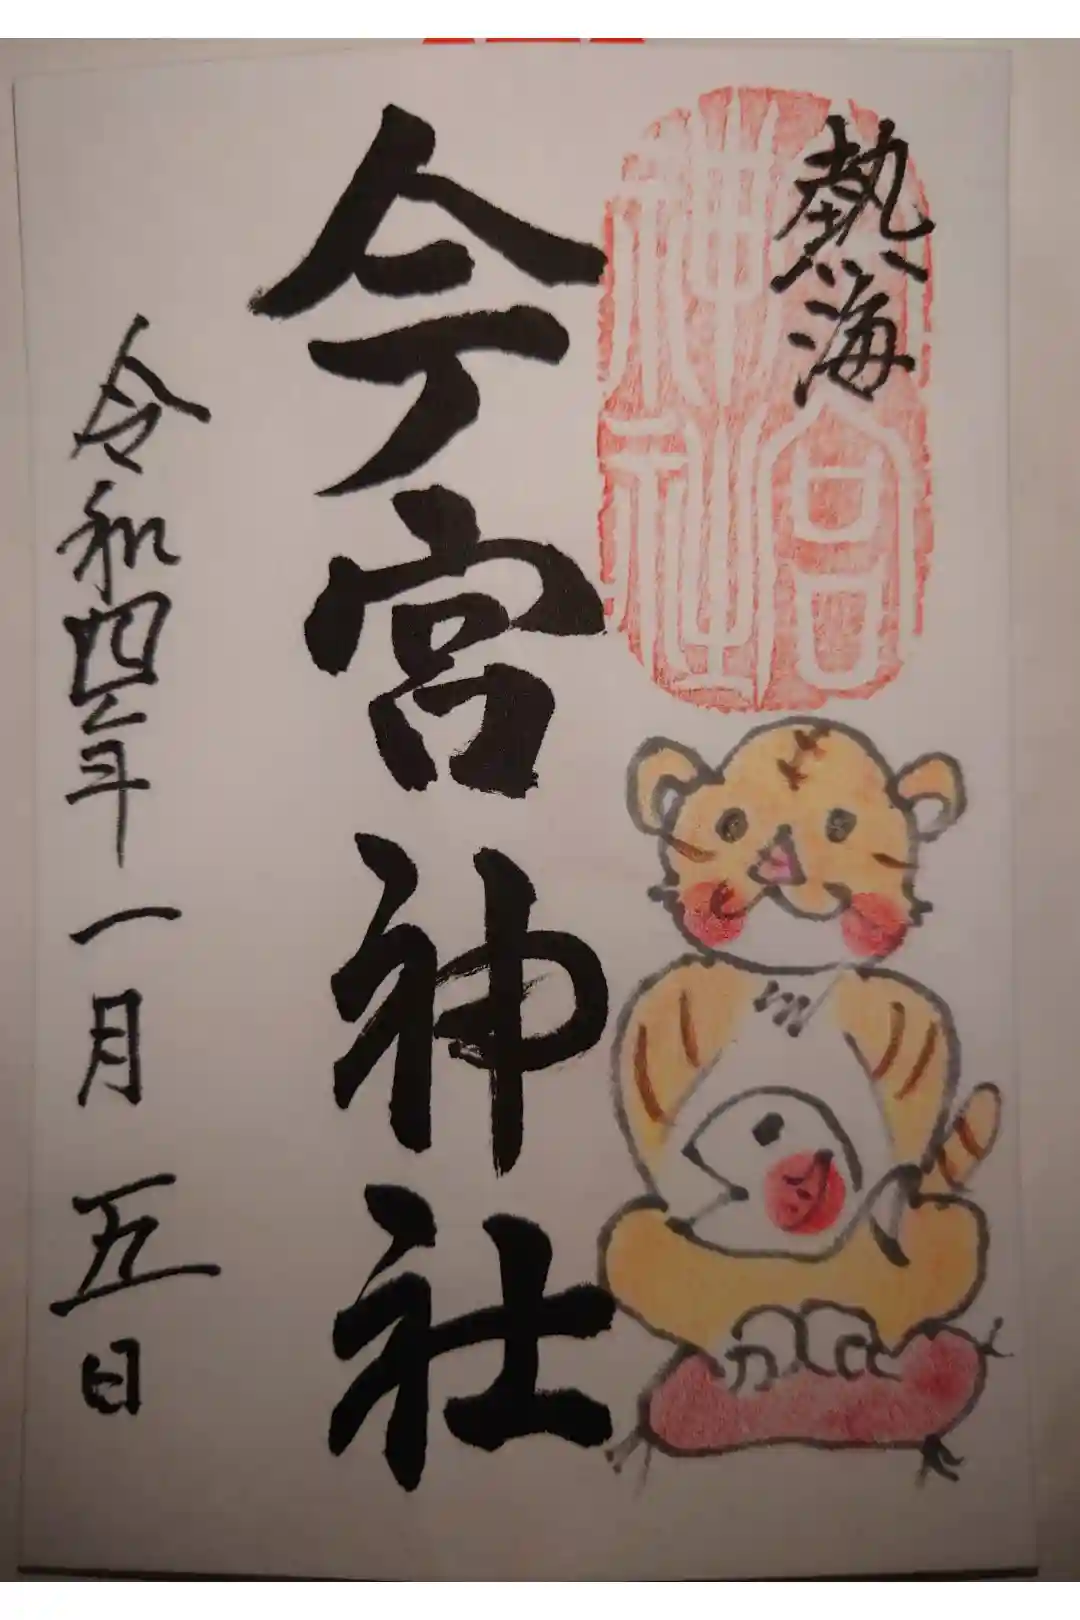 熱海
今宮神社
今宮神社
令和四年一月五日